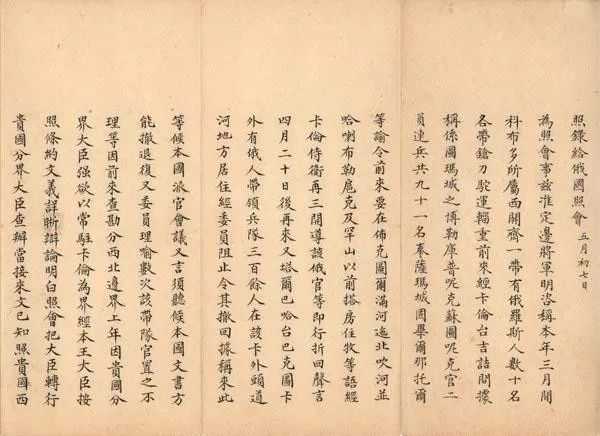 照錄給俄國照會　五月初七日
為照會事茲准定邊將軍明咨稱本年三月間
科布多所屬西閑齋一帶有俄羅斯人數十名
各帶鎗刀駝運輜重前來經卡倫台吉詰問據
稱係圖瑪城之博勒庫普呢克蘇圖呢克官二
員連兵共九十一名奉薩瑪城固畢爾那托爾
等諭令前來要在佈克圖爾滿河迤北吹河並
哈喇布勒扈克及罕山以前搭居住牧等語經
卡倫侍衛再三開導該俄官等即行折回聲言
四月二十日後再來又塔爾巴哈台巴克圖卡
外有俄人帶領兵隊三百餘人在該卡外頭道
河地方居住經委員阻止令其撤回據稱來此
等候本國派官會議又言須聽候本國文書方
能撤退復又委員理喻數次該帶隊官置之不
理等因前來查勘分西北邊界上年因貴國分
界大臣強欲以常駐卡倫為界經本王大臣按
照條約文義詳晰辯論明白照會把大臣轉行
貴國分界大臣查辦當接來文已知照貴國西